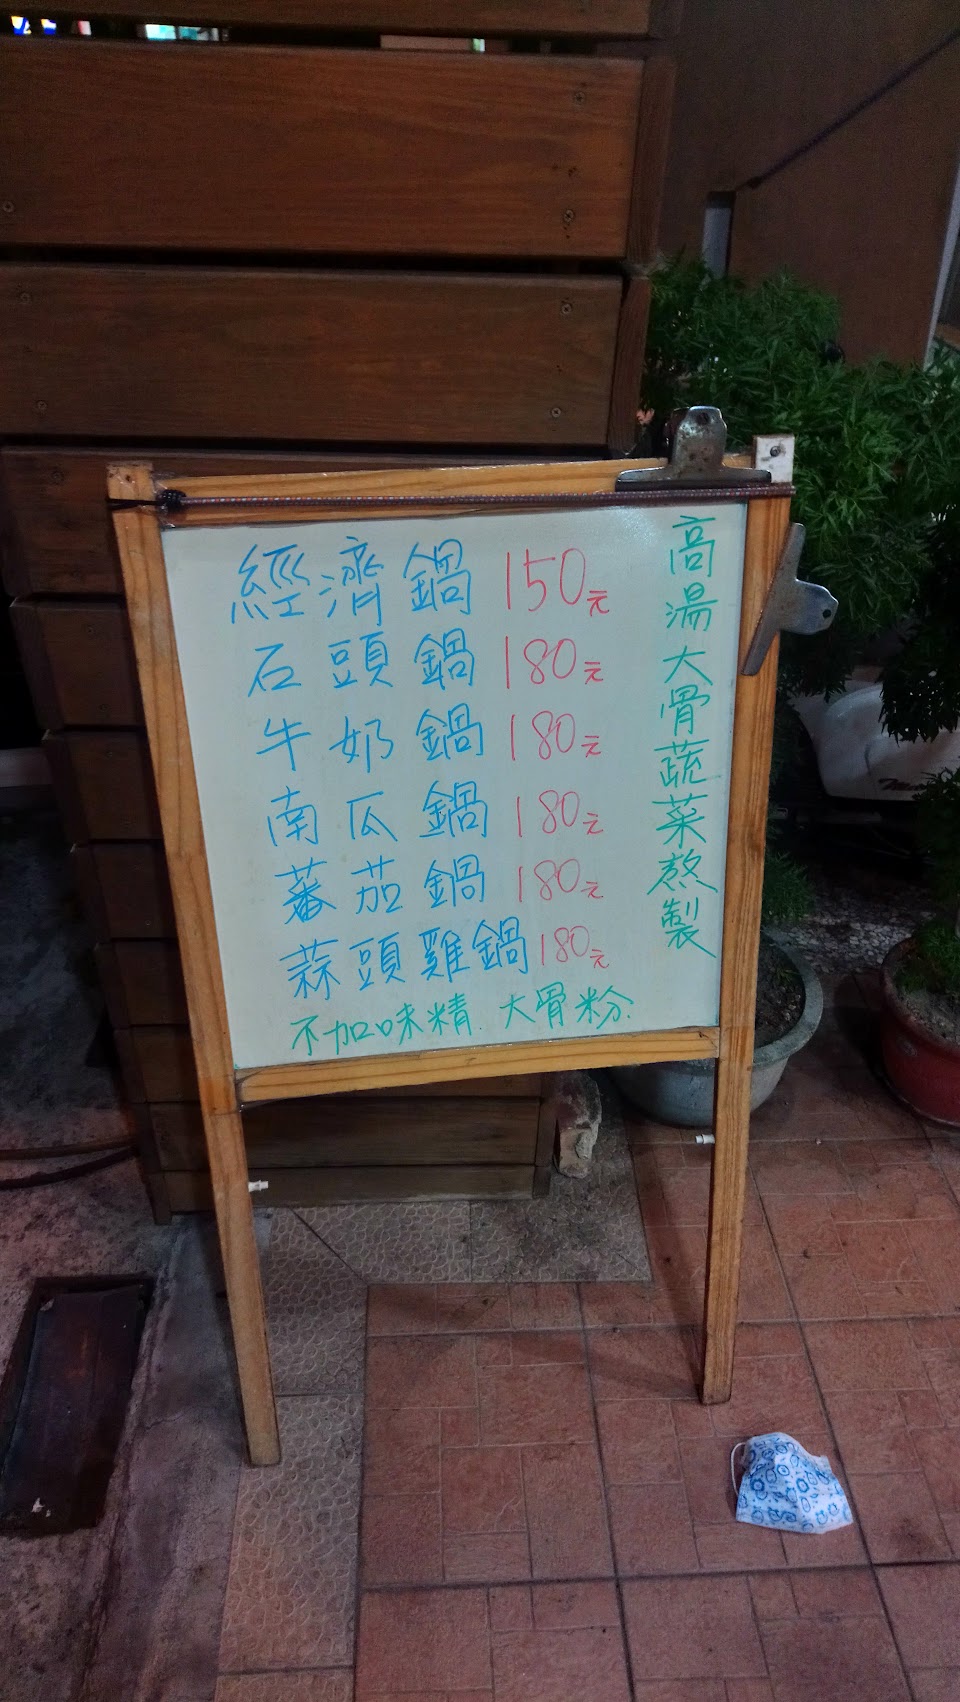 經濟鍋 150元
石頭鍋 180元
牛奶鍋 180元
南瓜鍋 180元
蕃茄鍋 180元
蒜頭雞鍋 180元
不加味精.大骨粉.
高湯大骨蔬菜熬製